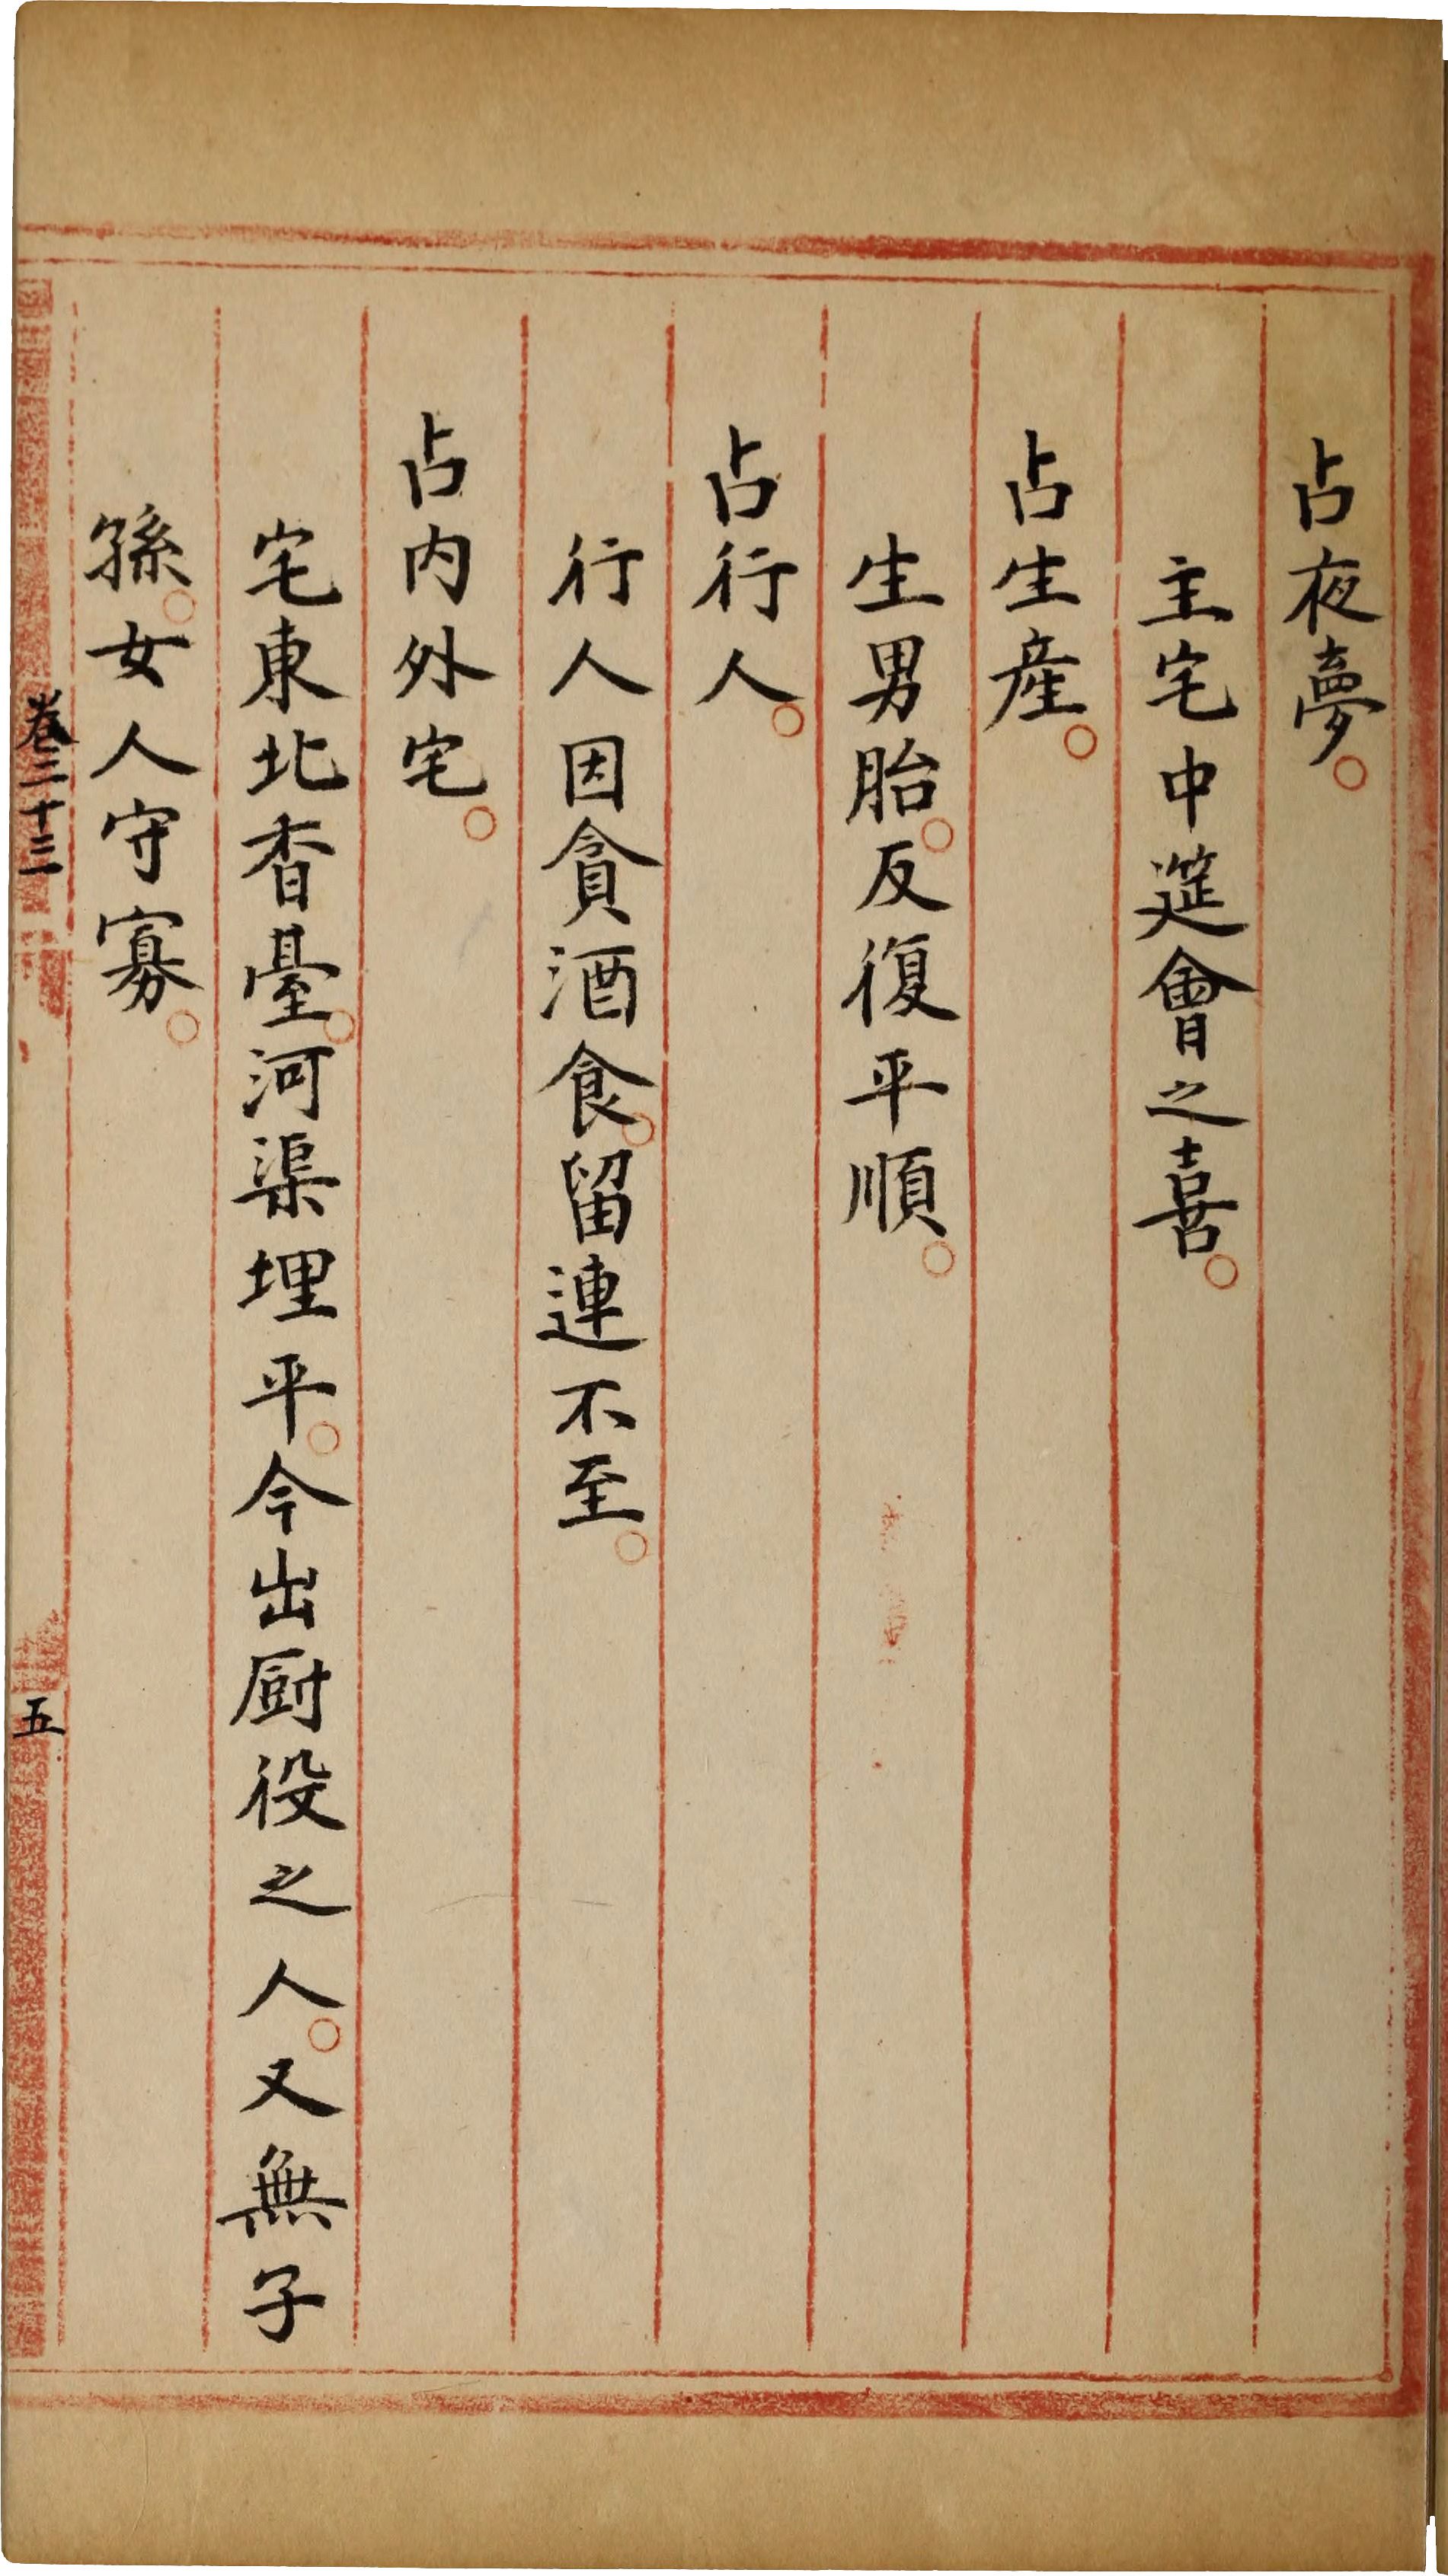 占夜夢。
主宅中筵會之喜。
占生產。
生男胎。反復平順。
占行人。
行人因貪酒食。留連不至。
占內外宅。
宅東北杳臺。河渠埋平。今出厨役之人。又無子
孫。女人守寡。
卷三十三
五